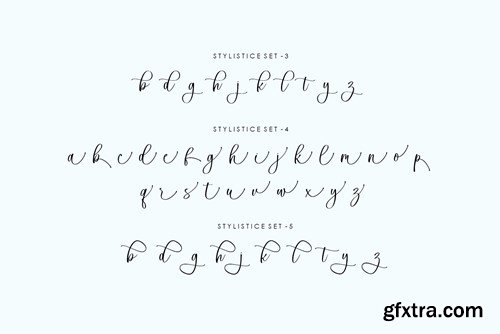 STYLISTICE SET - 3
b d g h j k l t y z
STYLISTICE SET - 4
a b c d e f g h i j k l m n o p
q r s t u v w x y z
STYLISTICE SET - 5
b d g h j k l t y z
gfxtra.com